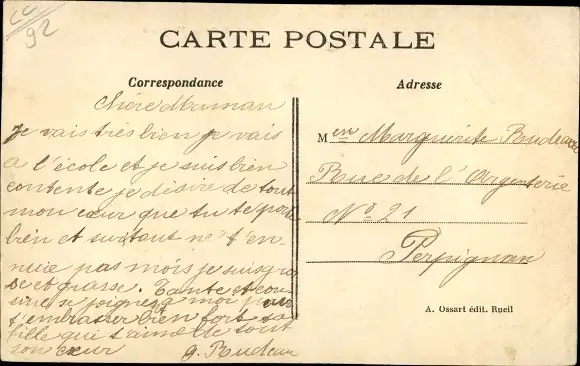 CARTE POSTALE
Correspondance
Adresse
chère Maman
je vais très bien je vais
a l'école et je suis bien
contente je désire de tout
mon cœur que tu te porte
bien et surtout ne t'en-
nuie pas mois je suis gro
se et grasse. Tante et cou
sine se joignes a moi pour
t'embrasser bien fort ta
fille qui t'aime de tout
son cœur
g. Rudeau
Men Marguerite Rudeau
Rue de l'Argenterie
No 21
Perpignan
A. Ossart édit. Rueil
92